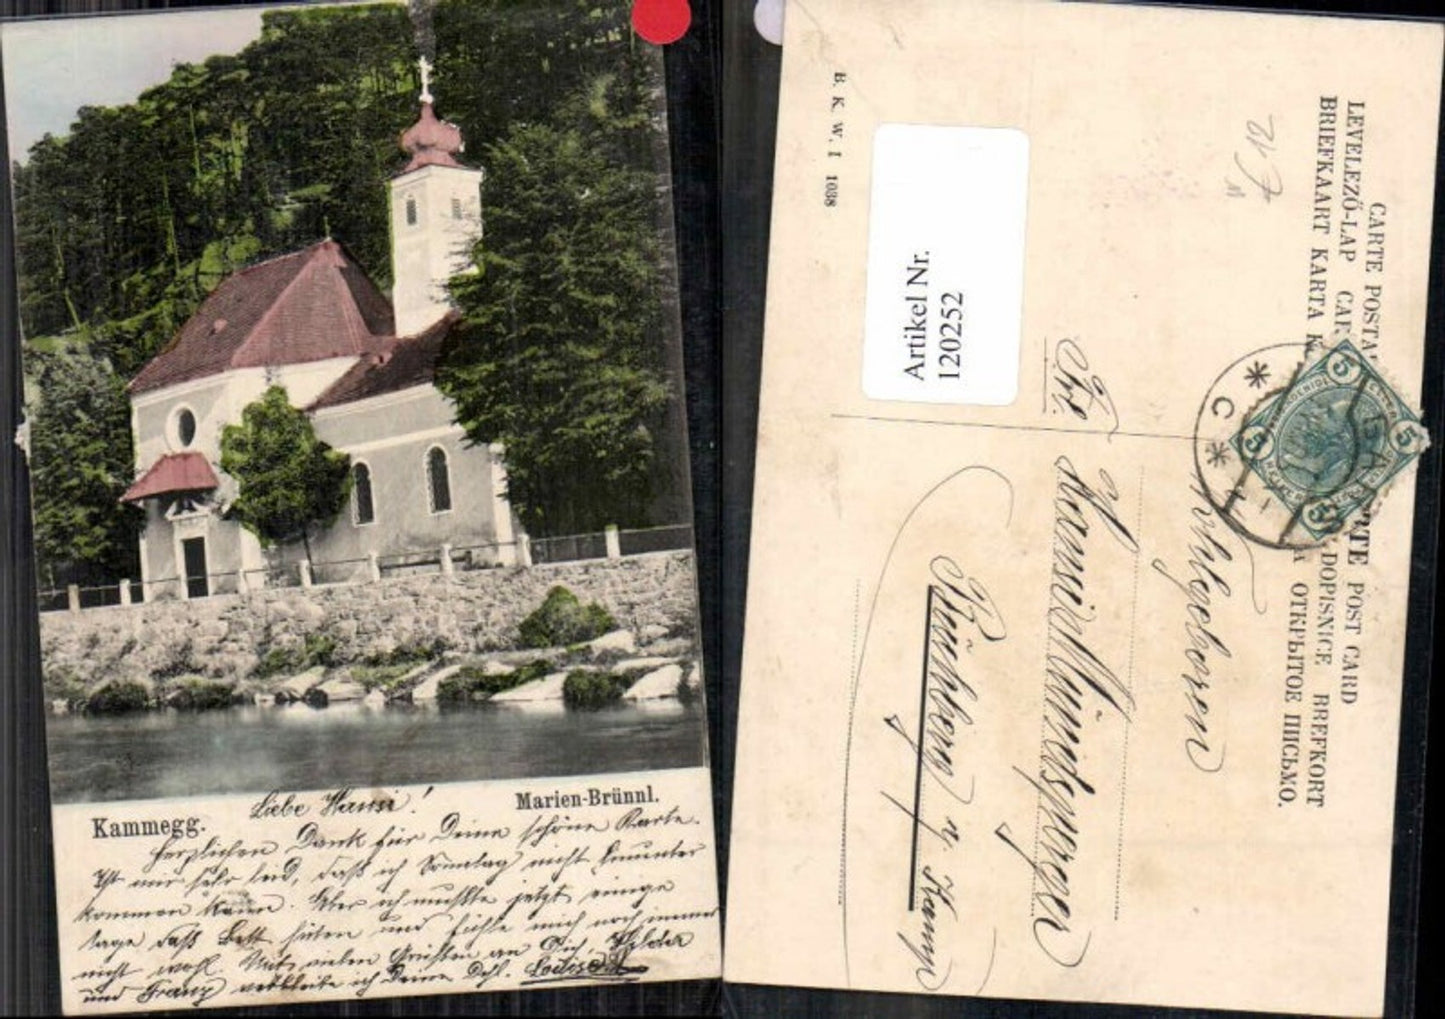 Kammegg.
Marien-Brünnl.
Liebe Hansi!
Herzlichen Dank für Deine schöne Karte.
Ist mir sehr leid, daß ich Sonntag nicht hinunter
kommen kann. Aber ich mußte jetzt einige
Tage das Bett hüten und fühle mich noch immer
nicht wohl. Mit vielen Grüßen an Dich, Hilda
und Franz verbleibe ich Deine Dchl. Louise
B. K. W. I 1038
Artikel Nr.
120252
CARTE POSTA
LEVELEZŐ-LAP CAR
BRIEFKAART KARTA K
POST CARD
DOPISNICE BREFKORT
ОТКРЫТОЕ ПИСЬМО.
5
5
5
5
C
Frl.
Hansi Münitsperger
Büchberg a. Kamp